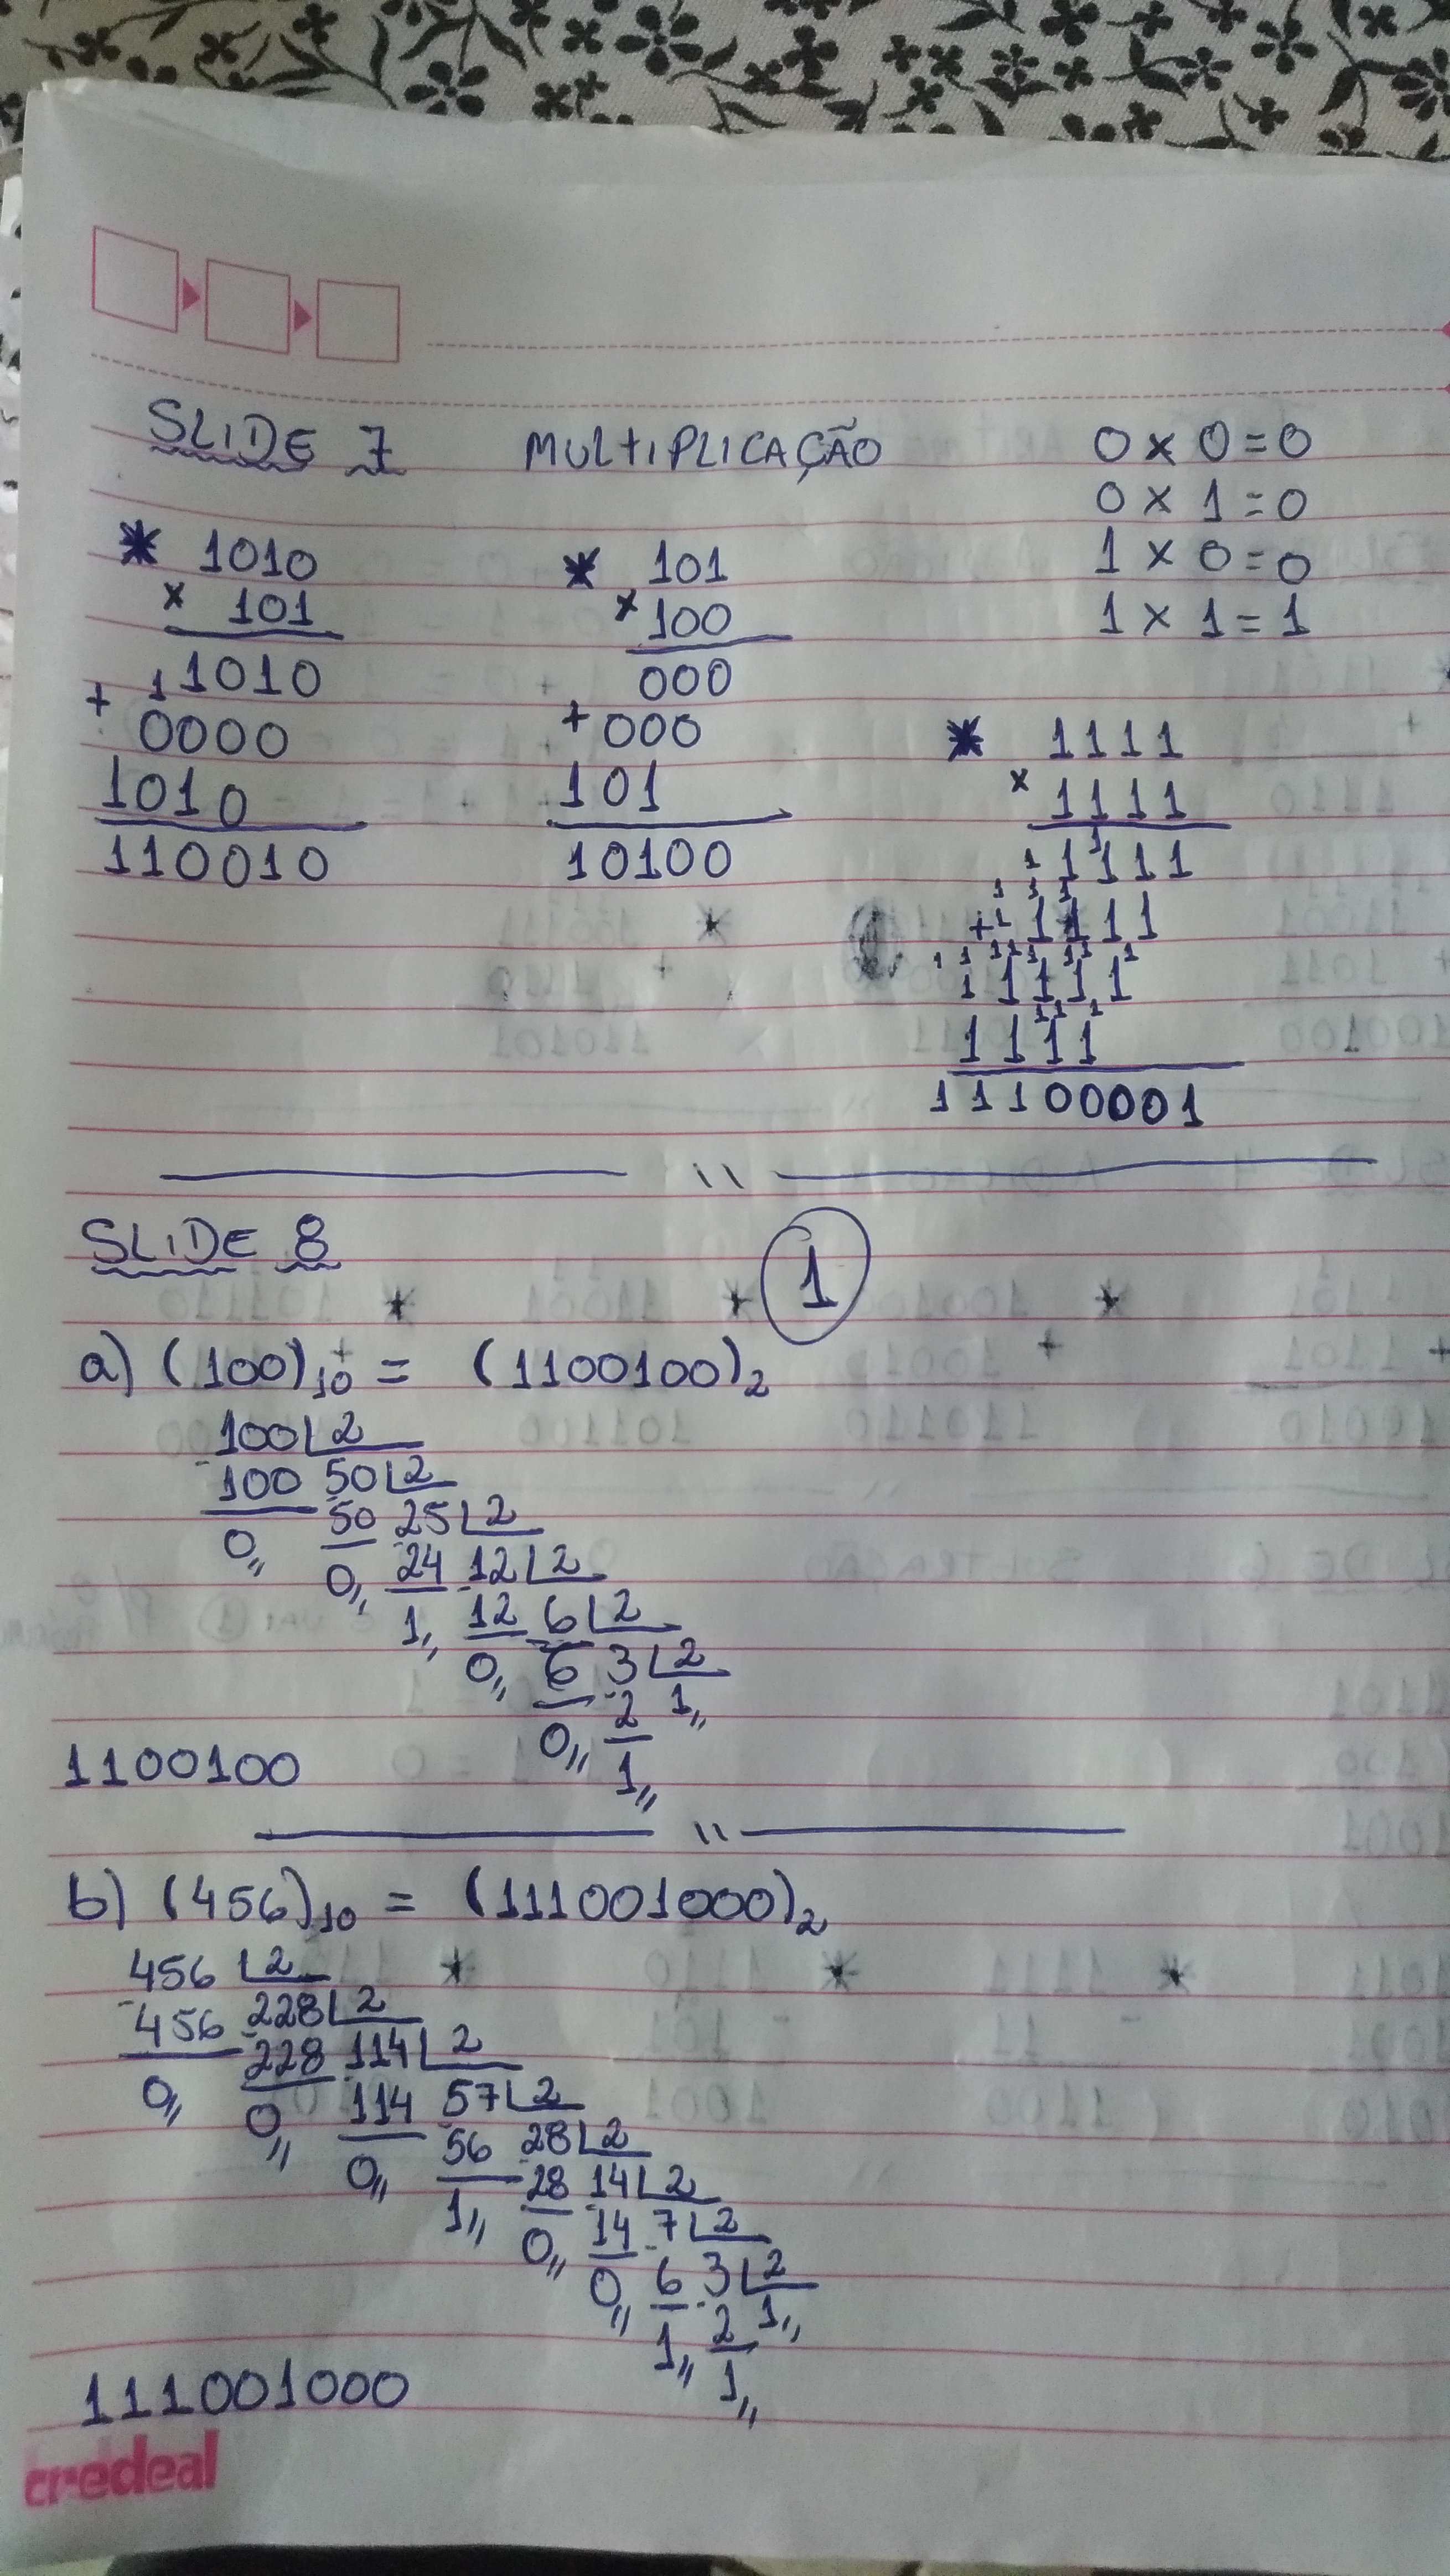 SLIDE 7 MULTIPLICAÇÃO
0 x 0 = 0
0 x 1 = 0
1 x 0 = 0
1 x 1 = 1
* 1010
x 101
1 1010
+ 0000
1010
110010
* 101
x 100
000
+ 000
101
10100
* 1111
x 1111
1111
+ 1111
1111
1111
11100001
SLIDE 8
1
a) (100)10 = (1100100)2
100 2
100 50 2
0 50 25 2
0 24 12 2
1 12 6 2
0 6 3 2
0 2 1
1
1100100
b) (456)10 = (111001000)2
456 2
456 228 2
0 228 114 2
0 114 57 2
0 56 28 2
1 28 14 2
0 14 7 2
0 6 3 2
1 2 1
1
111001000
credeal